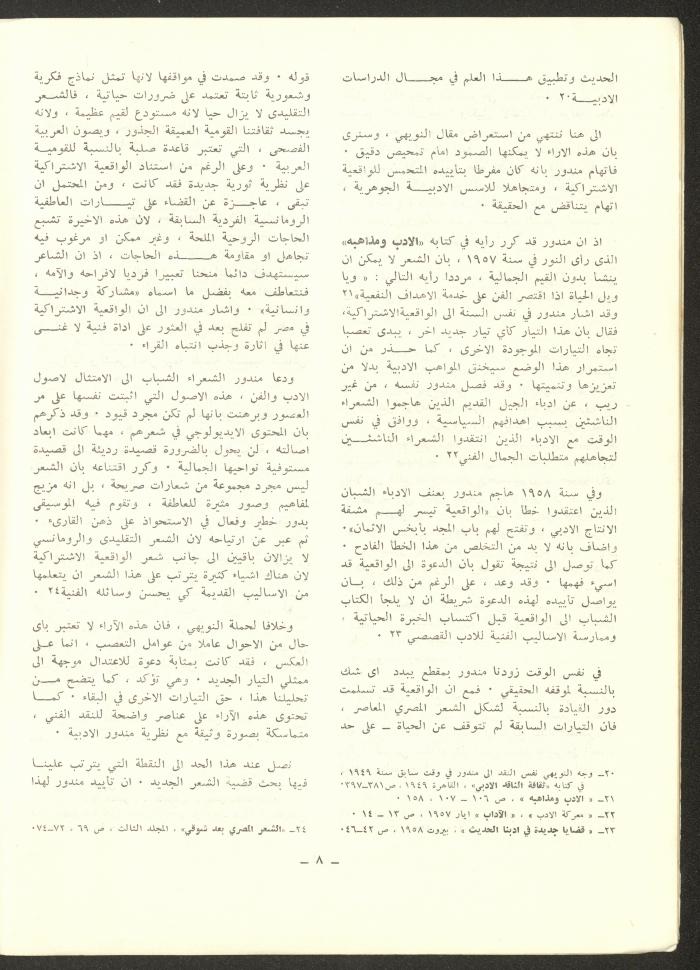 الحديث وتطبيق هـــذا العلم في مجـــال الدراسات
الادبيـــة٢٠ ٠
الى هنا ننتهي من استعراض مقال النويهي ، وسنرى
بان هذه الاراء لا يمكنها الصمود امام تمحيص دقيق ٠
فاتهام مندور بانه كان مفرطا بتأييده المتحمس للواقعية
الاشتراكية ، ومتجاهلا للاسس الادبيـــة الجوهرية ،
اتهام يتناقض مع الحقيقة ٠
اذ ان مندور قد كرر رأيه في كتابه «الادب ومذاهبه»
الذى رأى النور في سنة ١٩٥٧ ، بان الشعر لا يمكن ان
ينشا بدون القيم الجمالية ، مرددا رايه التالي : « ويا
ويل الحياة اذا اقتصر الفن على خدمة الاهداف النفعية»٢١
وقد اشار مندور في نفس السنة الى الواقعيةالاشتراكية،
فقال بان هذا التيار كأي تيار جديد اخر ، يبدى تعصبا
تجاه التيارات الموجودة الاخرى ، كما حـــذر من ان
استمرار هذا الوضع سيخنق المواهب الادبية بدلا من
تعزيزها وتنميتها ٠ وقد فصل مندور نفسه ، من غير
ريب ، عن ادباء الجيل القديم الذين هاجموا الشعراء
الناشئين بسبب اهدافهم السياسية ، ووافق في نفس
الوقت مع الادباء الذين انتقدوا الشعراء الناشئـــين
لتجاهلهم متطلبات الجمال الفني٢٢ ٠
وفي سنة ١٩٥٨ هاجم مندور بعنف الادباء الشبان
الذين اعتقدوا خطأ بان «الواقعية تيسر لهـــم مشقة
الانتاج الادبي ، وتفتح لهم باب المجد بأبخس الاثمان»٠
واضاف بانه لا بد من التخلص من هذا الخطأ الفادح ٠
كما توصل الى نتيجة تقول بان الدعوة الى الواقعية قد
اسيء فهمها ٠ وقد وعد ، على الرغم من ذلك ، بـــان
يواصل تأييده لهذه الدعوة شريطة ان لا يلجأ الكتاب
الشباب الى الواقعية قبل اكتساب الخبرة الحياتية ،
وممارسة الاساليب الفنية للادب القصصي ٢٣ ٠
في نفس الوقت زودنا مندور بمقطع يبدد اى شك
بالنسبة لموقفه الحقيقي ٠ فمع ان الواقعية قد تسلمت
دور القيادة بالنسبة لشكل الشعر المصري المعاصر ،
فان التيارات السابقة لم تتوقف عن الحياة ـ على حد
٢٠ـ وجه النويهي نفس النقد الى مندور في وقت سابق سنة ١٩٤٩ ،
في كتابه «ثقافة الناقد الادبي» ، القاهرة ١٩٤٩ ، ص٣٨١ـ٣٩٧٠
٢١ـ « الادب ومذاهبه » ، ص ١٠٦ ـ ١٠٧ ، ١٥٨ ٠
٢٢ـ « معركة الادب » ، « الآداب » ايار ١٩٥٧ ، ص ١٣ ـ ١٤ ٠
٢٣ـ « قضايا جديدة في ادبنا الحديث » ، بيروت ١٩٥٨ ، ص ٤٢ـ٤٦٠
قوله ٠ وقد صمدت في مواقفها لانها تمثل نماذج فكرية
وشعورية ثابتة تعتمد على ضرورات حياتية ، فالشـــعر
التقليدى لا يزال حيا لانه مستودع لقيم عظيمة ، ولانه
يجسد ثقافتنا القومية العميقة الجذور ، ويصون العربية
الفصحى ، التي تعتبر قاعدة صلبة بالنسبة للقوميـــة
العربية ٠ وعلى الرغم من استناد الواقعية الاشتراكية
على نظرية ثورية جديدة فقد كانت ، ومن المحتمل ان
تبقى ، عاجـــزة عن القضاء على تيـــارات العاطفية
الرومانسية الفردية السابقة ، لان هذه الاخيرة تشبع
الحاجات الروحية الملحة ، وغير ممكن او مرغوب فيه
تجاهل او مقاومة هـــذه الحاجات ، اذ ان الشاعر
سيستهدف دائما منحنا تعبيرا فرديا لافراحه وآلامه ،
فنتعاطف معه بفضل ما اسماه «مشاركة وجدانيـــة
وانسانية» ٠ واشار مندور الى ان الواقعية الاشتراكية
في مصر لم تفلح بعد في العثور على اداة فنية لا غنـــى
عنها في اثارة وجذب انتباه القراء ٠
ودعا مندور الشعراء الشباب الى الامتثال لاصول
الادب والفن ، هذه الاصول التي اثبتت نفسها على مر
العصور وبرهنت بانها لم تكن مجرد قيود ٠ وقد ذكرهم
بان المحتوى الايديولوجي في شعرهم ، مهما كانت ابعاد
اصالته ، لن يحول بالضرورة قصيدة رديئة الى قصيدة
مستوفية نواحيها الجمالية ٠ وكرر اقتناعه بان الشعر
ليس مجرد مجموعة من شعارات صريحة ، بل انه مزيج
لمفاهيم وصور مثيرة للعاطفة ، وتقوم فيه الموسيقى
بدور خطير وفعال في الاستحواذ على ذهن القارىء ٠
ثم عبر عن ارتياحه لان الشعر التقليدى والرومانسي
لا يزالان باقيين الى جانب شعر الواقعية الاشتراكية
لان هناك اشياء كثيرة يترتب على هذا الشعر ان يتعلمها
من الاساليب القديمة كي يحسن وسائله الفنية٢٤ ٠
وخلافا لحملة النويهي ، فان هذه الآراء لا تعتبر باى
حال من الاحوال عاملا من عوامل التعصب ، انما على
العكس ، فقد كانت بمثابة دعوة للاعتدال موجهة الى
ممثلي التيار الجديد ٠ وهي تؤكد ، كما يتضح مـــن
تحليلنا هذا ، حق التيارات الاخرى في البقاء ٠ كمـــا
تحتوى هذه الآراء على عناصر واضحة للنقد الفني ،
متماسكة بصورة وثيقة مع نظرية مندور الادبية ٠
نصل عند هذا الحد الى النقطة التي يترتب علينـــا
فيها بحث قضية الشعر الجديد ٠ ان تأييد مندور لهذا
٢٤ـ «الشعر المصري بعد شوقي» ، المجلد الثالث ، ص ٦٩ ، ٧٢ـ٧٤٠
ـ ٨ ـ